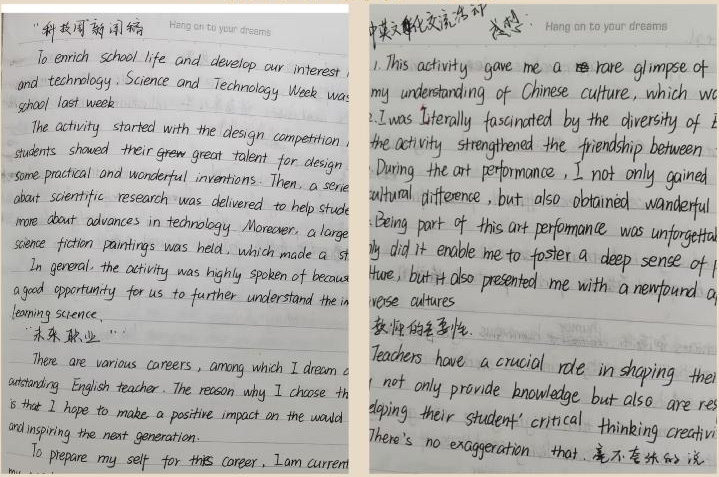 "科技周"新闻稿
Hang on to your dreams
To enrich school life and develop our interest
and technology, Science and Technology Week was
school last week
The activity started with the design competition
students showed their great talent for design
some practical and wonderful inventions. Then, a serie
about scientific research was delivered to help stude
more about advances in technology. Moreover, a large
science fiction paintings was held, which made a st
In general, the activity was highly spoken of becaus
a good opportunity for us to further understand the im
learning science.
"未来职业"
There are various careers, among which I dream o
outstanding English teacher. The reason why I choose th
is that I hope to make a positive impact on the would
and inspiring the next generation.
To prepare my self for this career, I am current
中英文化交流活动 感想:
Hang on to your dreams
1. This activity gave me a rare glimpse of
my understanding of Chinese culture, which wo
2. I was literally fascinated by the diversity of
the activity strengthened the friendship between
During the art performance, I not only gained
cultural difference, but also obtained wanderful
Being part of this art perfomance was unforgettal
ly did it enable me to foster a deep sense of
ture, but it also presented me with a newfound a
verse cultures
教师的重要性.
Teachers have a crucial role in shaping thei
not only provide knowledge but also are res
elping their student' critical thinking creativi
There's no exaggeration that. 毫不夸张的说